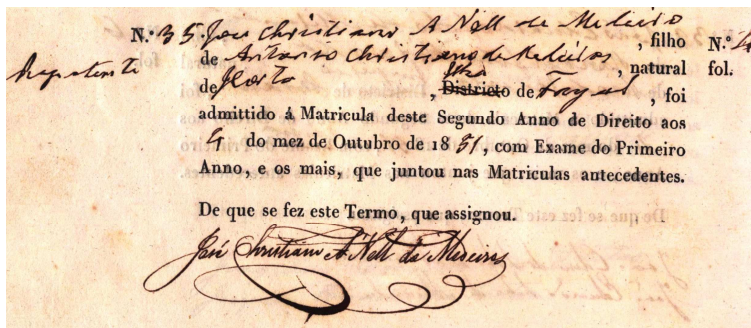 N.º 35. José Christiano A Nell de Medeiros
, filho N.º 4
de Antonio Christiano de Medeiros
Repetente , natural fol.
de Horta, Ilha Districto de Fayal, foi
admittido á Matricula deste Segundo Anno de Direito aos
4 do mez de Outubro de 1851, com Exame do Primeiro
Anno, e os mais, que juntou nas Matriculas antecedentes.
De que se fez este Termo, que assignou.
José Christiano A Nell de Medeiros